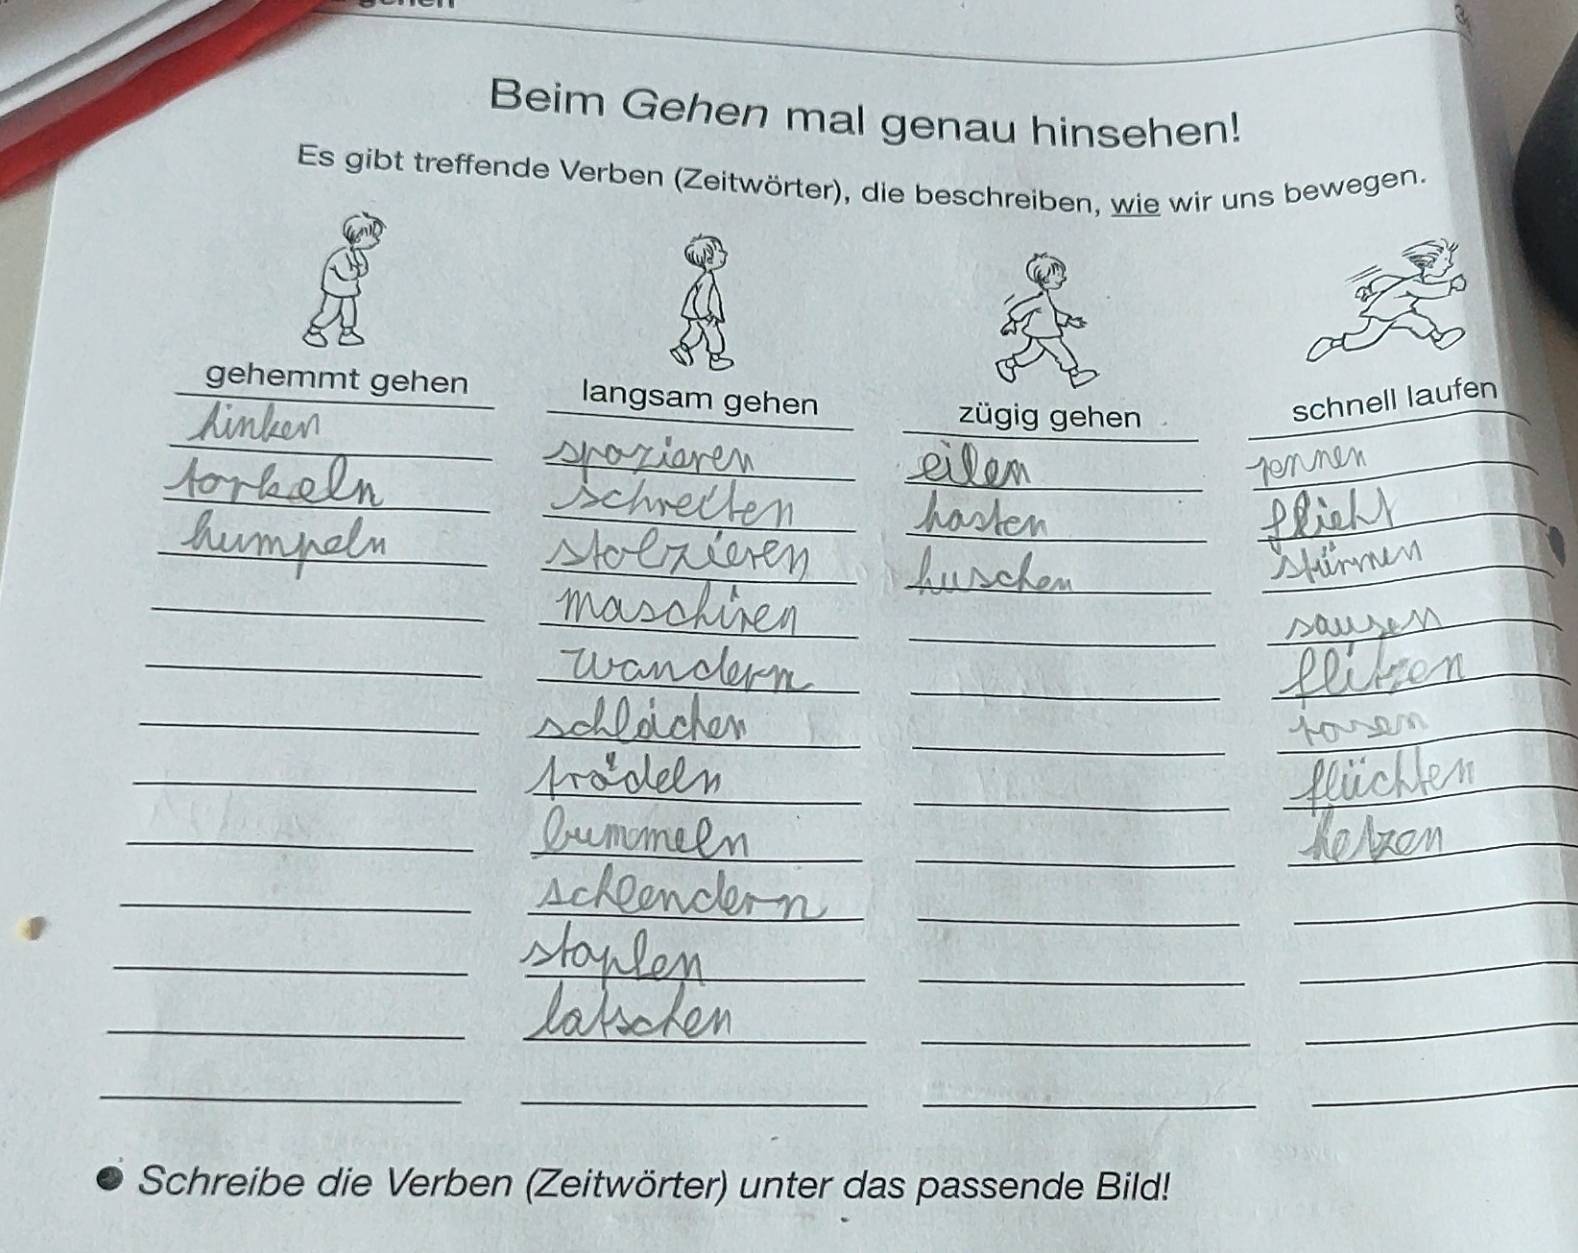 Beim Gehen mal genau hinsehen!
Es gibt treffende Verben (Zeitwörter), die beschreiben, wie wir uns bewegen.
gehemmt gehen
hinken
torkeln
humpeln
langsam gehen
spazieren
schreiten
stolzieren
maschiren
wandern
schleichen
trödeln
bummeln
schlendern
staplen
latschen
zügig gehen
eilen
hasten
huschen
schnell laufen
rennen
flieht
stürmen
sausen
flitzen
rasen
flüchten
hetzen
● Schreibe die Verben (Zeitwörter) unter das passende Bild!